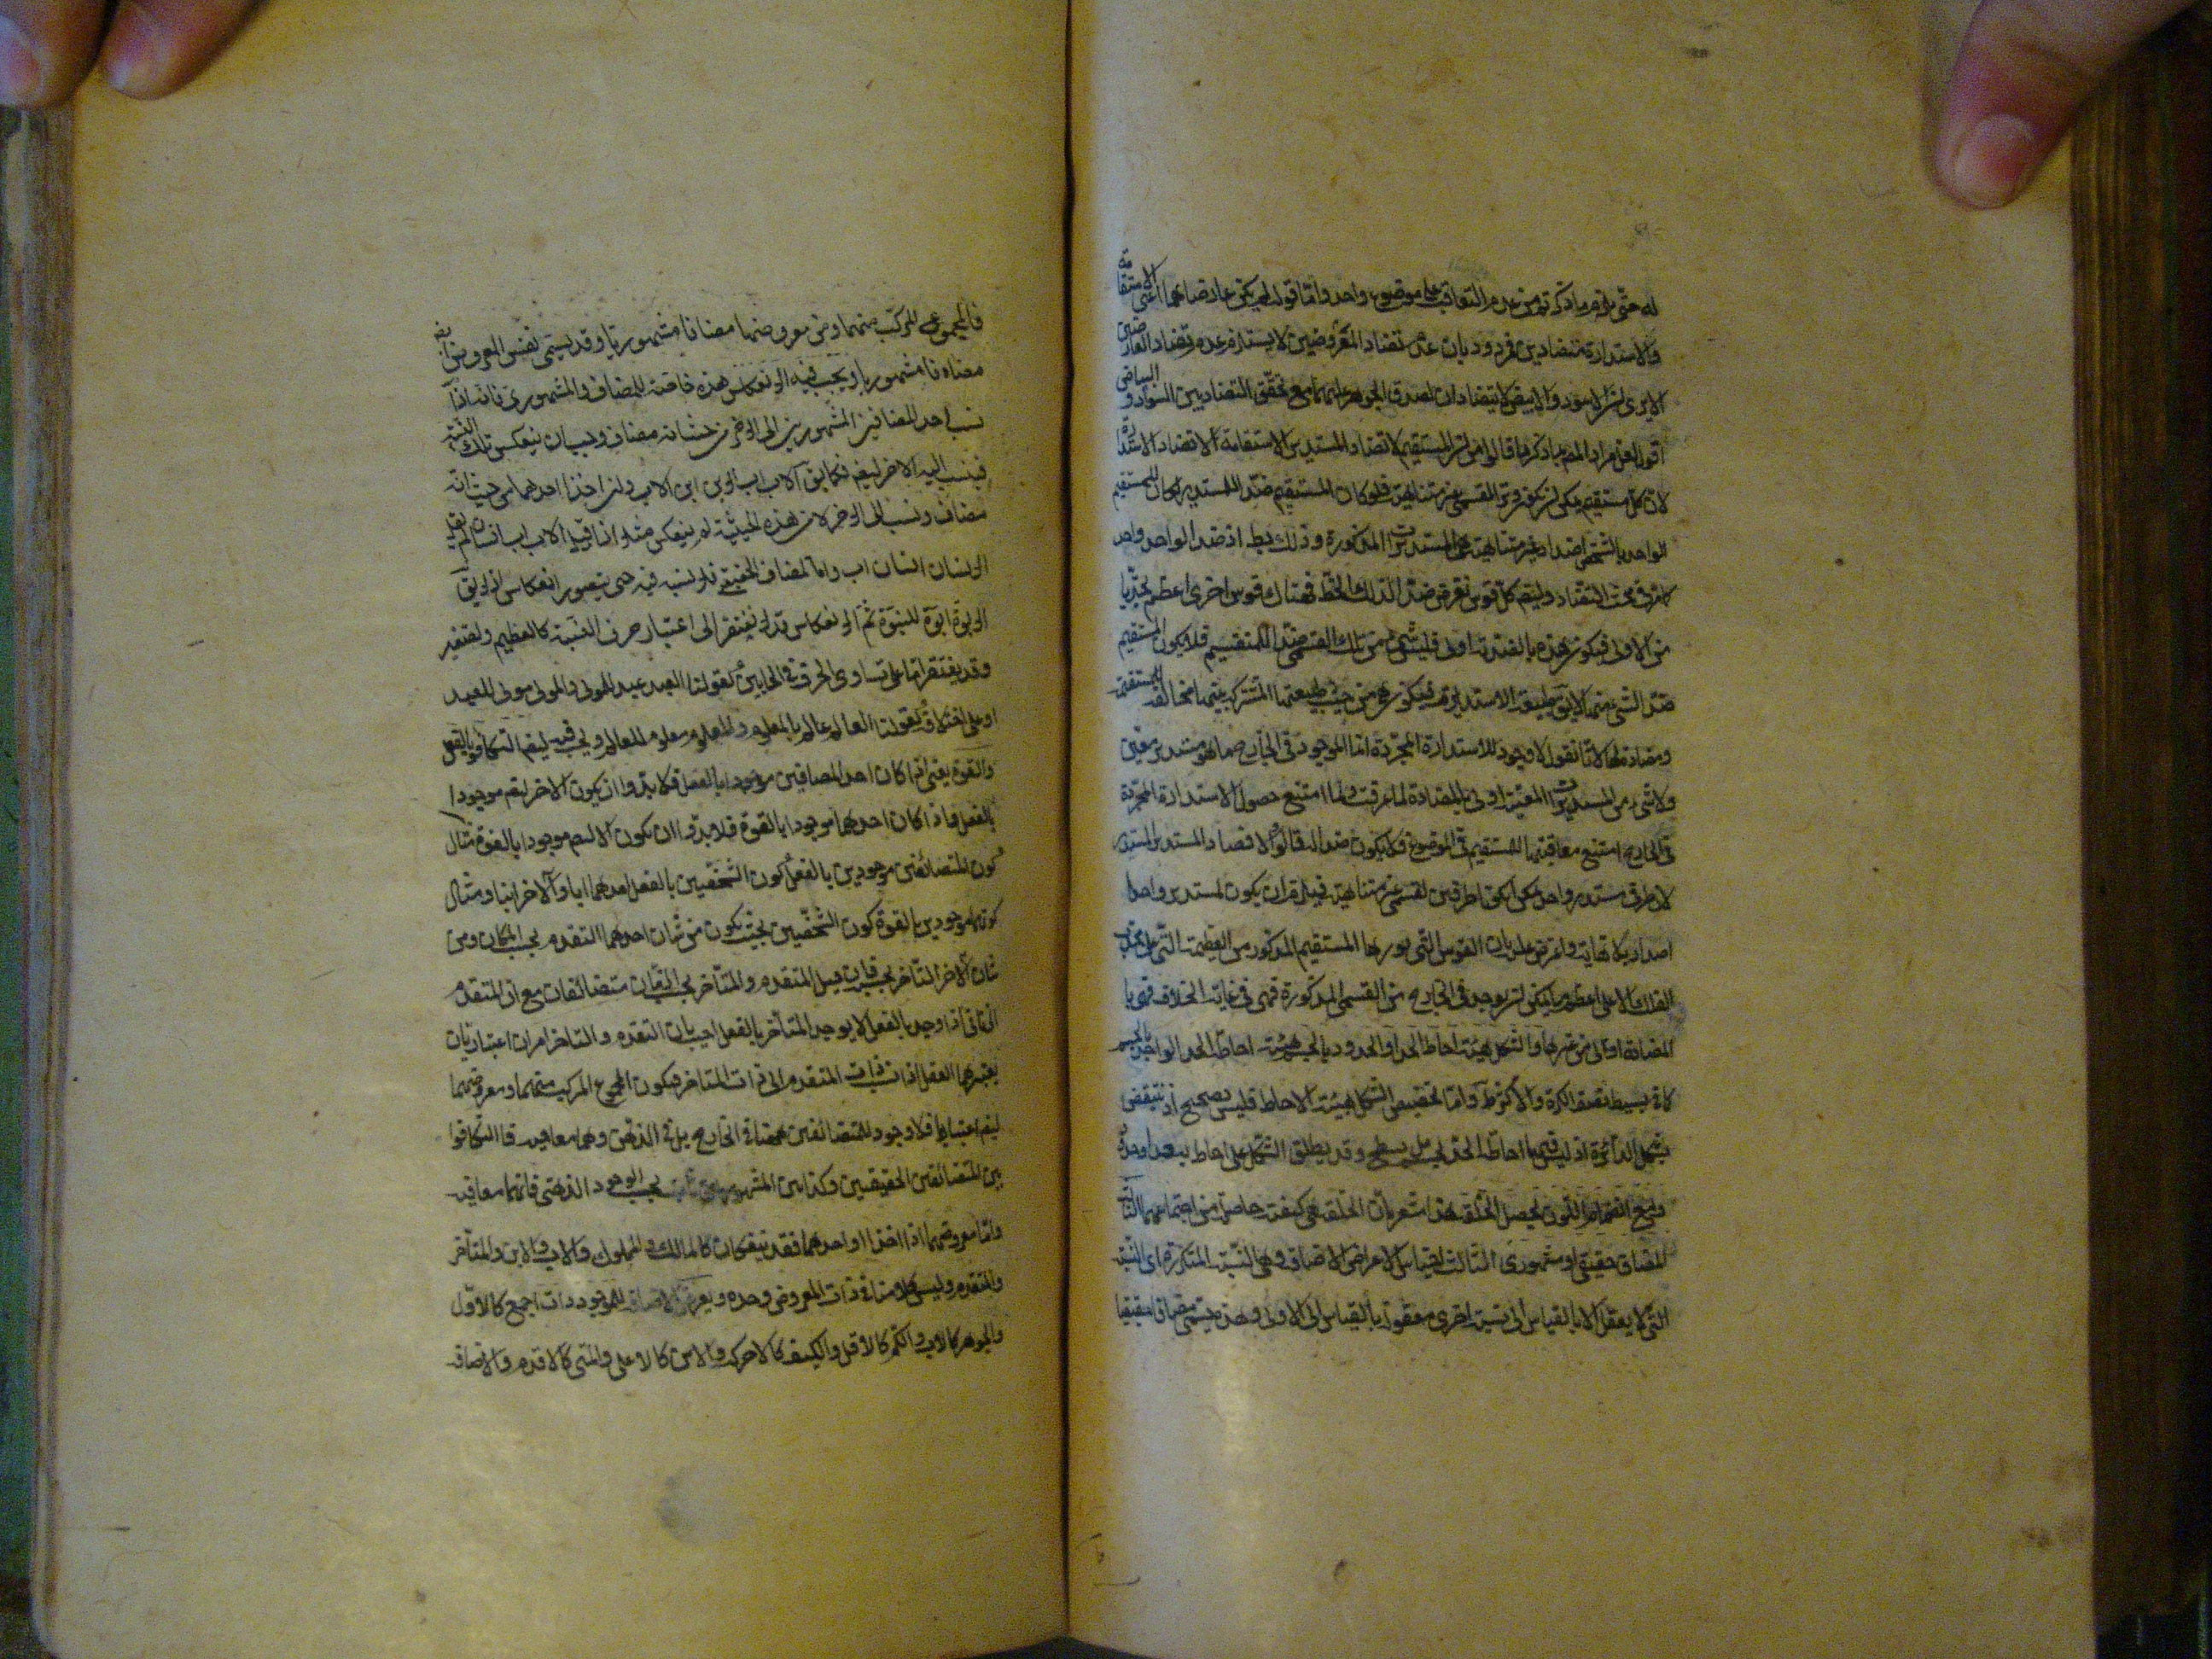 له حتى يلزم ما ذكرتم من عدم التعاقب على موضوع واحد واما قوله لم يكن عارضاهما اعنى الاستقامة
والاستدارة متضادين فمردود بان عدم تضاد المعروضين لا يستلزم عدم تضاد العارضين
الا يرى ان الاسود والابيض لا يتضادان لصدق الجوهر عليهما مع تحقق التضاد بين السواد والبياض
اقول لعل مراد المص ما ذكرها قالوا من ان المستقيم لا تضاد المستدير والاستقامة لا تضاد الاستدارة
لان كل مستقيم يمكن ان يكون وتر القسى غير متناهية فلو كان المستقيم ضد المستدير لكان للمستقيم
الواحد بالشخص اضداد غير متناهية هى المستديرات المذكورة وذلك بط اذ ضد الواحد واحد
كما مر فى بحث التضاد وايضا كل قوس نفرض ضد الذلك الخط فهناك قوس اخرى اعظم تحديبا
من الاولى فيكون هذه بالضدية اولى فليس شىء من تلك القسى ضدا للمستقيم فلا يكون المستقيم
ضد الشىء منها لا يق طبيعة الاستدارة فيكون هى من حيث طبيعتها المشتركة بينهما مخالفة للمستقيمة
ومضادة لها لانا نقول لا وجود للاستدارة المجردة انما الموجود فى الخارج مما هو مستدير معين
ولا شىء من المستديرات المعينة اولى بالمضادة لما عرفت ولما امتنع حصول الاستدارة المجردة
فى الخارج امتنع معاقبتها المستقيم فى الموضوع فلا يكون ضدا له قالوا ولا تضاد المستدير المستدير
لان طرفى مستدير واحد يمكن ان يكونا طرفين لقسى غير متناهية فيلزم ان يكون لمستدير واحد
اضداد بلا نهاية واعترض عليه بان القوس التى يوترها المستقيم المذكور من العظيمة التى على محدب
الفلك الاعلى اعظم ما يمكن ان يوجد فى الخارج من القسى المذكورة فهى فى غاية الخلاف فهى با
المضادة اولى من غيرها والشكل هيئة احاطة الحد او الحدود بالجسم هيئة احاطة الحد الواحد بالجسم
كما فى بسيط نصف الكرة والاكثر واما تخصيص الشكل بهيئة الاحاطة فليس بصحيح اذ ينتقض
بشكل الدائرة اذ ليس فيها احاطة الحد بجسم بل بسطح وقد يطلق الشكل على احاطة
ومع انضمام اللون يحصل الخلقة هذا مشعر بان الخلقة هى كيفية حاصلة من اجتماعهما الثالث
المضاف حقيقى او مشهورى الثالث من اقسام الاعراض الاضافة وهى النسبة المتكررة اى النسبة
التى لا يعقل الا بالقياس الى نسبة اخرى معقولة بالقياس الى الاولى وهذه يسمى مضافا حقيقيا
فالمجموع المركب منهما ومن معروضهما مضافا مشهوريا وقد يسمى نفس المعروض ايضا
مضافا مشهوريا ويجب فيه الانعكاس هذه خاصة للمضاف المشهورى فانه اذا
نسب احد المضافين المشهورين الى الاخر من حيث انه مضاف وجب ان ينعكس تلك النسبة
فينسب اليه الاخر ايضا فكما يق الاب اب الابن ابن الاب وان اخذ احدهما من حيث انه
مضاف ونسب الى الاخر لا من هذه الحيثية لم ينعكس مثلا اذا قيل الاب اب انسان لم يقل
الانسان انسان اب واما المضاف الحقيقى فلا نسبة فيه حتى يتصور انعكاس اذ لا يق
الابوة ابوة للبنوة ثم الانعكاس قد لا يفتقر الى اعتبار حرف النسبة كالعظيم والصغير
وقد يفتقر اما على تساوى الحرف فى الجانبين كقولنا العبد عبد للمولى والمولى مولى للعبد
او على اختلافه كقولنا العالم عالم بالمعلوم والمعلوم معلوم للعالم ويجب فيه ايضا التكافؤ بالفعل
والقوة يعنى اذا كان احد المضافين موجودا بالفعل فلا بد وان يكون الاخر ايضا موجودا
بالفعل واذا كان احدهما موجودا بالقوة فلا بد وان يكون الاخر ايضا موجودا بالقوة مثال
كون المتضائفين موجودين بالفعل كون الشخصين بالفعل احدهما ابا والاخر ابنا ومثال
كونهما موجودين بالقوة كون الشخصين بحيث يكون من شان احدهما التقدم بحسب المكان ومن
شان الاخر التاخر بحسبه فان قيل المتقدم والمتاخر بحسب الزمان متضائفان مع ان المتقدم
الزمانى اذا وجد بالفعل لا يوجد المتاخر بالفعل اجيب بان التقدم والتاخر امران اعتباريان
يعتبرهما العقل اذا نسب ذات المتقدم الى ذات المتاخر فيكون المجموع المركب منهما ومن معروضهما
ايضا اعتباريا فلا وجود للمتضائفين ههنا فى الخارج بل فى الذهن وهما معا فيه فالتكافؤ
بين المتضائفين الحقيقيين وكذا بين المشهوريين ثابت بحسب الوجود الذهنى فانهما معا فيه
واما معروضهما اذا اخذا او احدهما فقد ينفكان كالمالك والمملوك والاب والابن والمتاخر
والمتقدم وليس كلامنا فى ذات المعروض وحده ويعرض الاضافة للموجودات اجمع كالاول
والجوهر كالاب والكم كالاقل والكيف كالاحر والاين كالاعلى والمتى كالاقدم والاضافة